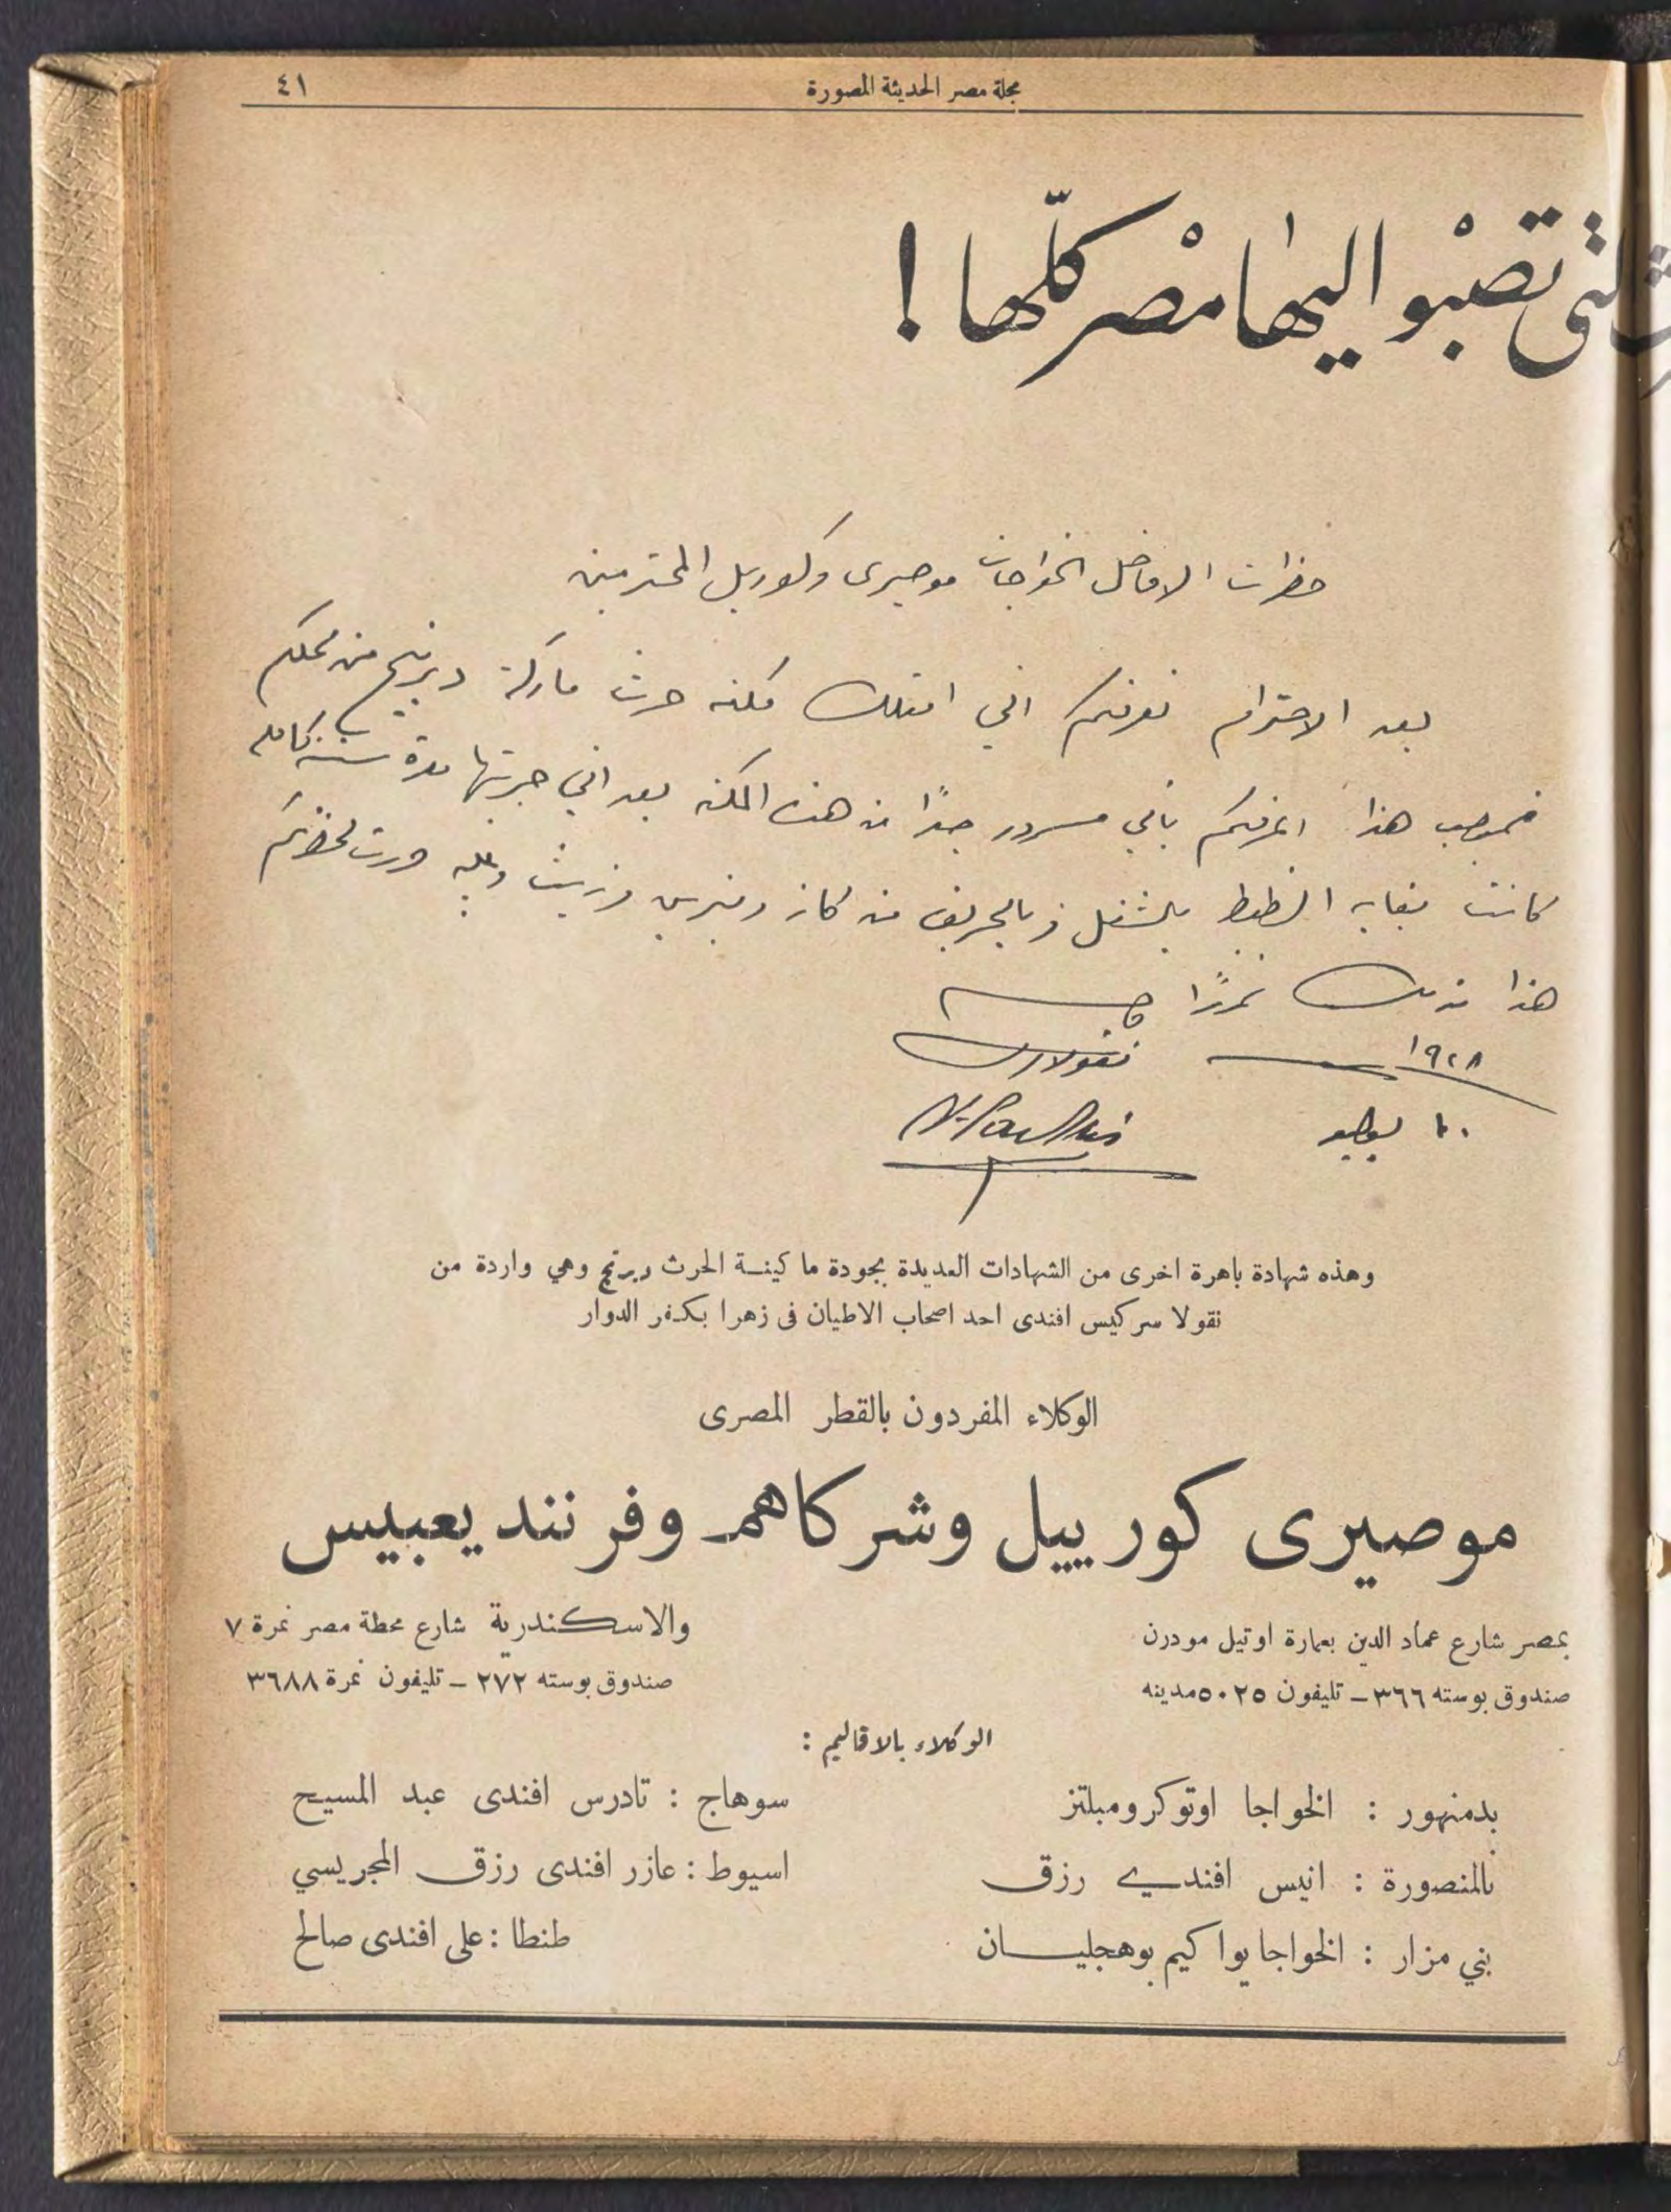 مجلة مصر الحديثة المصورة
٤١
لتى تصبو اليها مصر كلّها !
حضرات الافاضل الخواجات موصيرى وكورييل المحترمين
بعد الاحترام نعرفكم اني امتلك مكنه حرث ماركة ديرنج من محلكم
فبموجب هذا اعرفكم باني مسرور جدًا من هذه المكنه بعد اني جربتها مدة سنة كامله
كانت بغاية الظبط بالشغل وبالحريق من كاز وبنزين وزيت وعليه حررت لحضرتكم
هذا
١٩٢٨
نقولا
١٠ يوليو
وهذه شهادة باهرة اخرى من الشهادات العديدة بجودة ماكينة الحرث ديرنج وهي واردة من
نقولا سركيس افندى احد اصحاب الاطيان فى زهرا بكفر الدوار
الوكلاء المفردون بالقطر المصرى
موصيرى كورييل وشركاهم وفرنند يعبيس
بمصر شارع عماد الدين بعمارة اوتيل مودرن
صندوق بوسته ٣٦٦ – تليفون ٥٠٢٥ مدينه
والاسكندرية شارع محطة مصر نمرة ٧
صندوق بوسته ٢٧٢ – تليفون نمرة ٣٦٨٨
الوكلاء بالاقاليم :
بدمنهور : الخواجا اوتوكرومبلتز
بالمنصورة : انيس افندي رزق
بني مزار : الخواجا يواكيم بوهجليان
سوهاج : تادرس افندى عبد المسيح
اسيوط : عازر افندى رزق المجريسي
طنطا : على افندى صالح